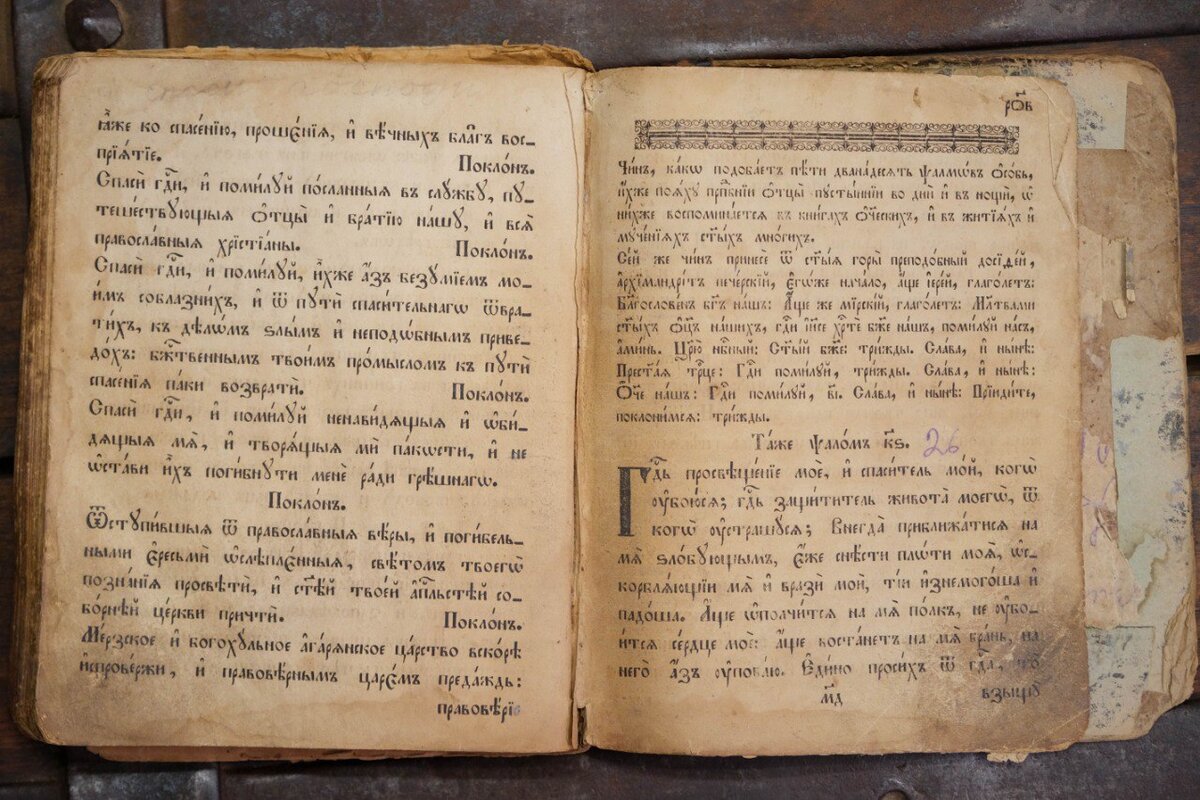 ꙗ҆́же ко спасе́нїю, проще́нїѧ, и҆ вѣ́чныхъ бл҃гъ вос_
прїѧ́тїе. Покло́нъ.
Спасѝ гдⷭ҇и, и҆ поми́лꙋй по́сланныѧ въ слꙋ́жбꙋ, пꙋ_
теше́ствꙋющыѧ ѻ҆тцы̀ и҆ бра́тїю на́шꙋ, и҆ всѧ̑
правосла́вныѧ хрїстїа́ны. Покло́нъ.
Спасѝ гдⷭ҇и, и҆ поми́лꙋй, и҆̀хже а҆́зъ безꙋ́мїемъ мо_
и́мъ соблазни́хъ, и҆ ѿ пꙋтѝ спаси́тельнагѡ ѿвра_
ти́хъ, къ дѣлѡ́мъ ѕлы̑мъ и҆ неподѡ́бнымъ приве_
до́хъ: бжⷭ҇твеннымъ твои́мъ про́мысломъ къ пꙋтѝ
спасе́нїѧ па́ки возвратѝ. Покло́нъ.
Спасѝ гдⷭ҇и, и҆ поми́лꙋй ненави́дѧщыѧ и҆ ѡ҆би́_
дѧщыѧ мѧ̀, и҆ творѧ́щыѧ мѝ па́кости, и҆ не
ѡ҆ста́ви и҆́хъ поги́бнꙋти менє̀ ра́ди грѣ́шнагѡ.
Покло́нъ.
Ѿстꙋпи́вшыѧ ѿ правосла́вныѧ вѣ́ры, и҆ поги́бель_
ными є҆ресьмѝ ѡ҆слѣпле́нныѧ, свѣ́томъ твоегѡ̀
позна́нїѧ просвѣтѝ, и҆ ст҃ѣ́й твое́й а҆пⷭ҇льстѣй со_
бо́рнѣй це́ркви причтѝ. Покло́нъ.
Ме́рзское и҆ богохꙋ́льное а҆гарѧ́нское ца́рство вско́рѣ
и҆спрове́ржи, и҆ правовѣ̑рнымъ царє́мъ преда́ждь:
правовѣ́рїе
ро҃в
Чи́нъ, ка́кѡ подоба́етъ пѣ́ти двана́десѧть ѱалмѡ́въ ѻ҆со́бь,
и҆̀хже поѧ́хꙋ прпⷣбнїи ѻ҆тцы̀ пꙋсты́ннїи во днѝ и҆ въ нощѝ, ѡ҆
ни́хже воспомина́етсѧ въ кни́гахъ ѻ҆те́ческихъ, и҆ въ житїѧ́хъ и҆
мꙋче́нїѧхъ ст҃ы́хъ мно́гихъ.
Се́й же чи́нъ принесѐ ѿ ст҃ы́ѧ горы̀ преподо́бный досїѳе́й,
а҆рхїмандрі́тъ пече́рскїй, є҆гѡ́же нача́ло, а҆́ще і҆ере́й, глаго́летъ:
Бл҃гослове́нъ бг҃ъ на́шъ: А҆́ще же мїрскі́й, глаго́летъ: Мл҃твами
ст҃ы́хъ ѻ҆тє́цъ на́шихъ, гдⷭ҇и і҆и҃се хрⷭ҇тѐ бж҃е на́шъ, поми́лꙋй на́съ,
а҆ми́нь. Цр҃ю̀ нбⷭ҇ный: Ст҃ы́й бж҃е: три́жды. Сла́ва, и҆ ны́нѣ:
Прест҃а́ѧ трⷪ҇це: Гдⷭ҇и поми́лꙋй, три́жды. Сла́ва, и҆ ны́нѣ:
Ѻ҆́ч҃е на́шъ: Гдⷭ҇и поми́лꙋй, в҃і. Сла́ва, и҆ ны́нѣ: Прїиди́те,
поклони́мсѧ: три́жды.
Та́же ѱало́мъ к҃ѕ. 26
Гдⷭ҇ь просвѣще́нїе моѐ, и҆ спаси́тель мо́й, когѡ̀
ᲂу҆бою́сѧ; гдⷭ҇ь защи́титель живота̀ моегѡ̀, ѿ
когѡ̀ ᲂу҆страшꙋ́сѧ; Внегда̀ приближа́тисѧ на
мѧ̀ ѕло́бꙋющымъ, є҆́же снѣ́сти плѡ́ти моѧ̑, ѡ҆с_
корблѧ́ющїи мѧ̀ и҆ вразѝ моѝ, ті́и и҆знемого́ша и҆
падо́ша. А҆́ще ѡ҆полчи́тсѧ на мѧ̀ по́лкъ, не ᲂу҆бо_
и́тсѧ се́рдце моѐ: а҆́ще воста́нетъ на мѧ̀ бра́нь, на
него̀ а҆́зъ ᲂу҆пова́ю. Е҆ди́но проси́хъ ѿ гдⷭ҇а, то̀
м҃д взыщꙋ̀